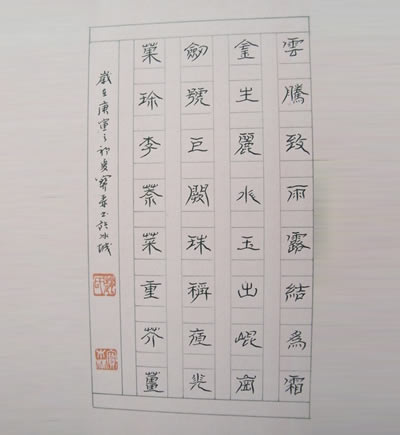 雲騰致雨露結為霜
金生麗水玉出崐崗
劒號巨闕珠稱夜光
菓珍李柰菜重芥薑
歲在庚寅之初夏書於冰城